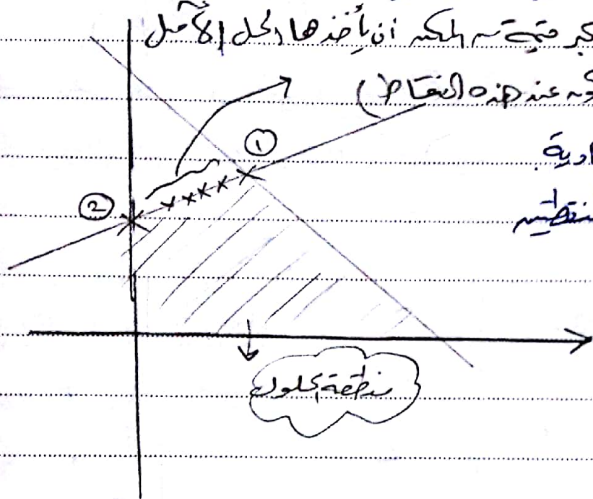 كبر قيمة من الممكن أن يأخذها الحل الأمثل
عند هذه النقاط)
ادية
①
نقطتين
②
منطقة الحلول